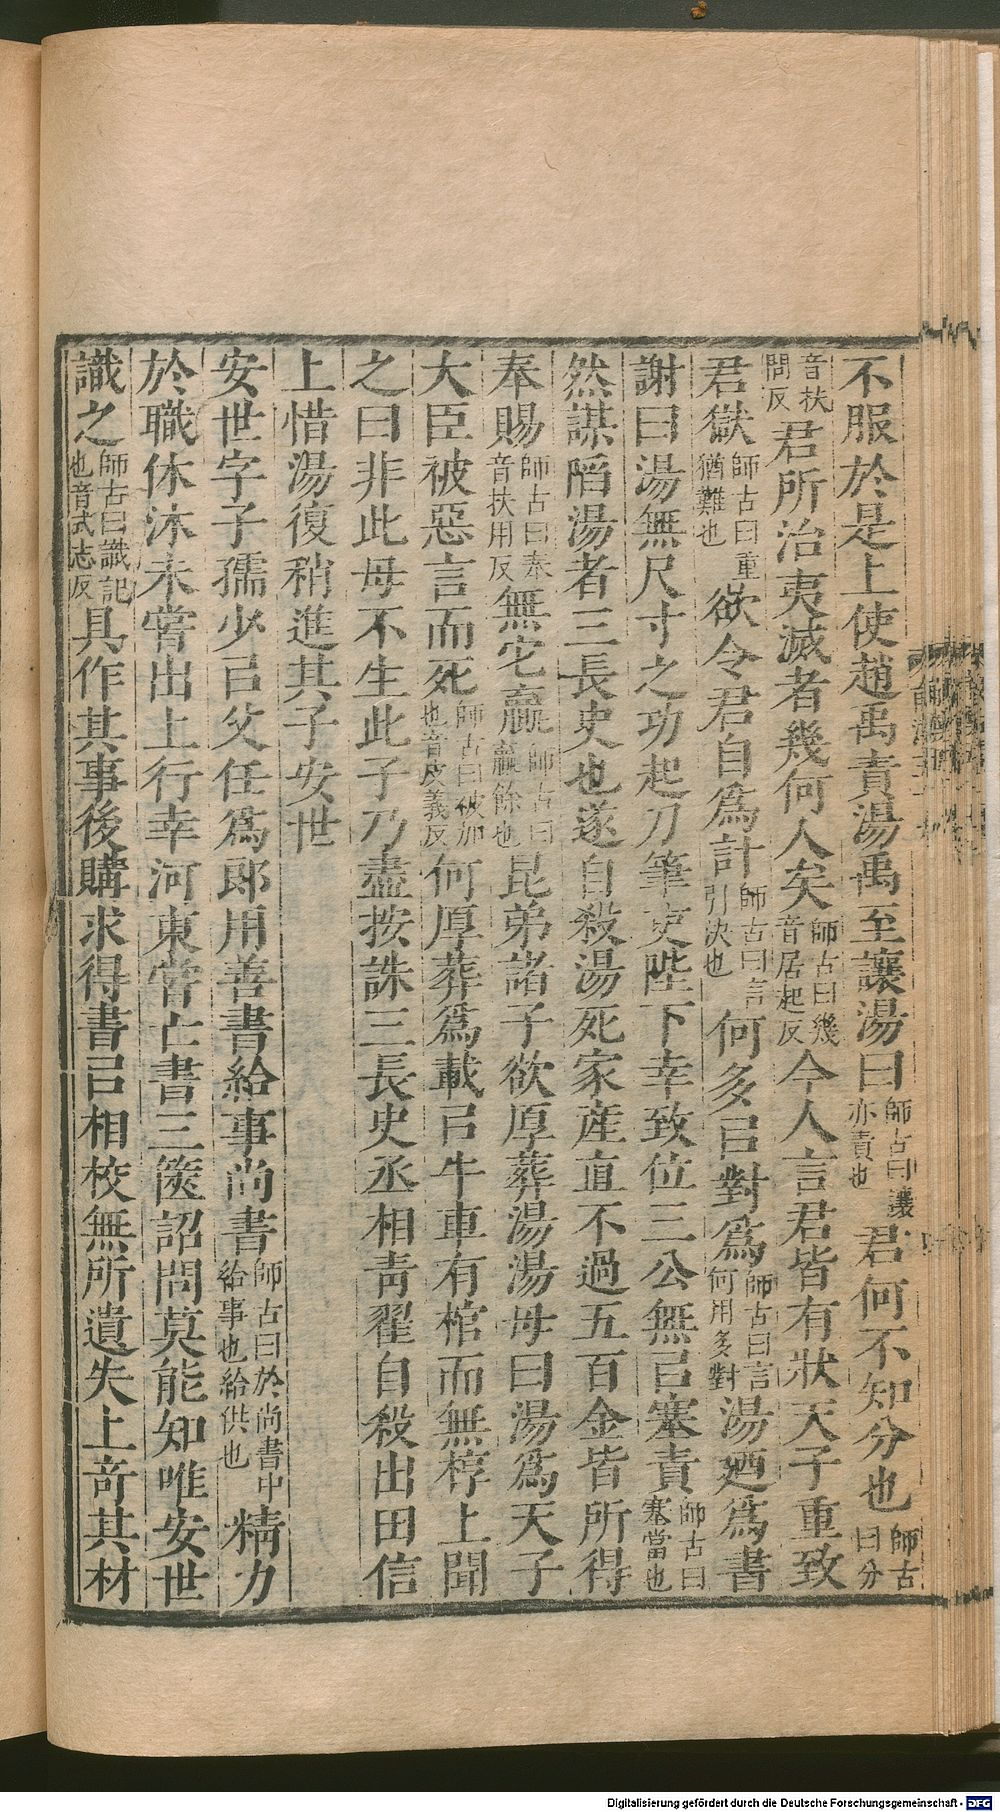 不服於是上使趙禹責湯禹至讓湯曰師古曰讓亦責也君何不知分也師古曰分
音扶問反君所治夷滅者幾何人矣師古曰幾音居起反今人言君皆有狀天子重致
君獄師古曰重猶難也欲令君自爲計師古曰言引決也何多㠯對爲師古曰言何用多對湯廼爲書
謝曰湯無尺寸之功起刀筆吏陛下幸致位三公無㠯塞責師古曰塞當也
然謀陷湯者三長史也遂自殺湯死家産直不過五百金皆所得
奉賜師古曰奉音扶用反無它贏師古曰贏餘也昆弟諸子欲厚葬湯湯母曰湯爲天子
大臣被惡言而死師古曰被加也音皮義反何厚葬爲載㠯牛車有棺而無椁上聞
之曰非此母不生此子乃盡按誅三長史丞相青翟自殺出田信
上惜湯復稍進其子安世
安世字子孺少㠯父任爲郎用善書給事尚書師古曰於尚書中給事也給供也精力
於職休沐未嘗出上行幸河東嘗亡書三篋詔問莫能知唯安世
識之師古曰識記也音式志反具作其事後購求得書㠯相校無所遺失上奇其材
Digitalisierung gefördert durch die Deutsche Forschungsgemeinschaft - DFG